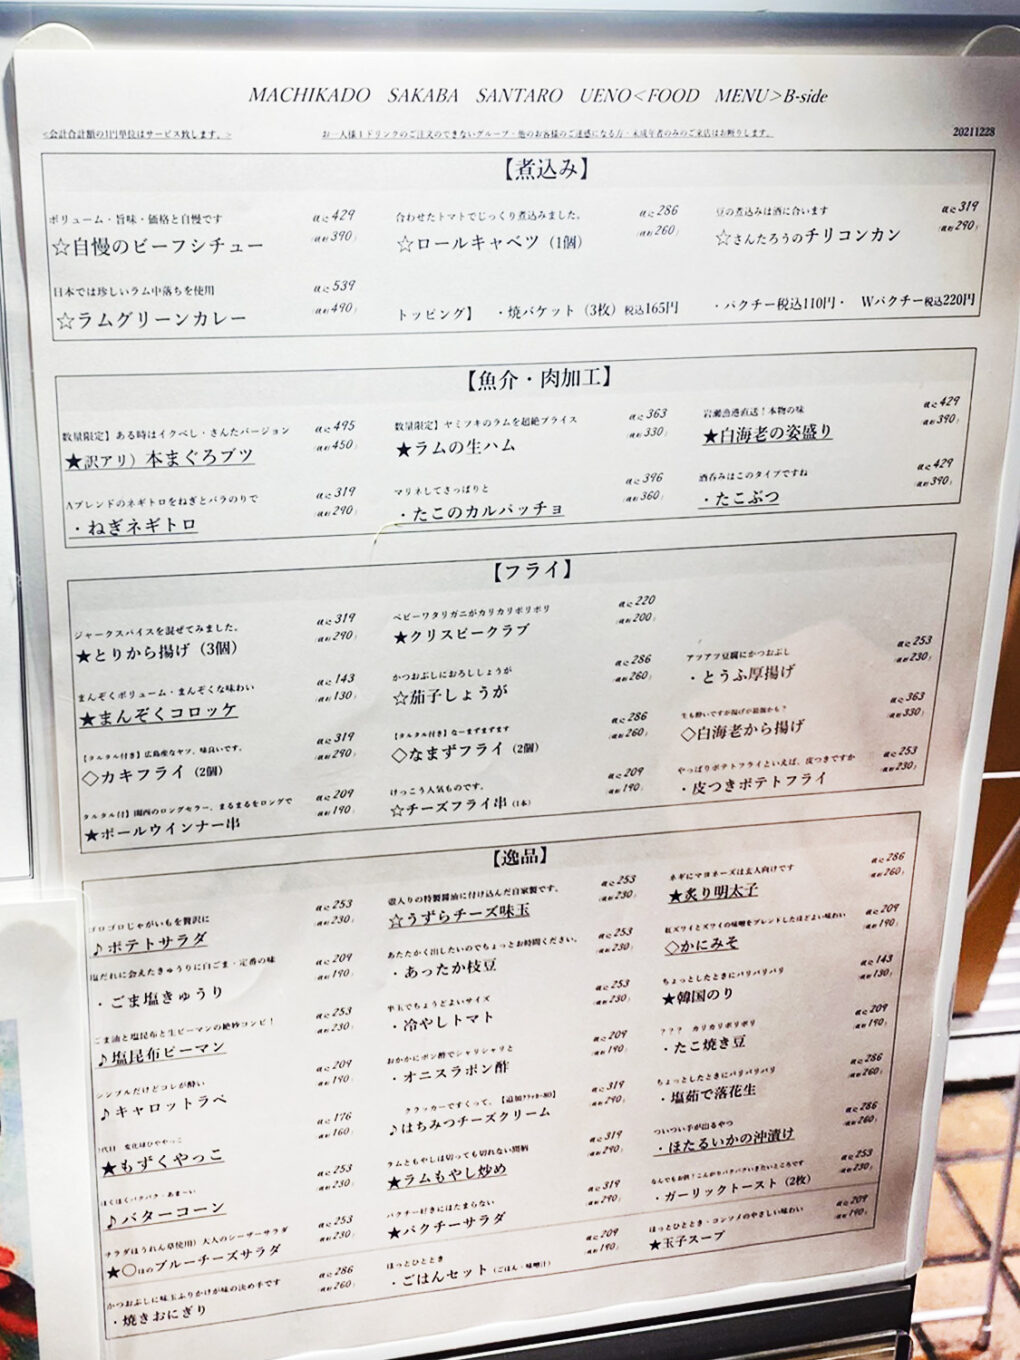 MACHIKADO SAKABA SANTARO UENO<FOOD MENU>B-side
<会計合計額の1円単位はサービス致します。>
お一人様1ドリンクのご注文のできないグループ・他のお客様のご迷惑になる方・未成年者のみのご来店はお断りします。
20211228
【煮込み】
ボリューム・旨味・価格と自慢です
税込429
☆自慢のビーフシチュー
(税抜390)
合わせたトマトでじっくり煮込みました。
税込286
☆ロールキャベツ(1個)
(税抜260)
豆の煮込みは酒に合います
税込319
☆さんたろうのチリコンカン
(税抜290)
日本では珍しいラム中落ちを使用
税込539
☆ラムグリーンカレー
(税抜490)
トッピング】 ・焼バケット(3枚)税込165円 ・パクチー税込110円・ Wパクチー税込220円
【魚介・肉加工】
数量限定】ある時はイクべし・さんたバージョン
税込495
★訳アリ)本まぐろブツ
(税抜450)
数量限定】ヤミツキのラムを超絶プライス
税込363
★ラムの生ハム
(税抜330)
岩瀬漁港直送!本物の味
税込429
★白海老の姿盛り
(税抜390)
Aブレンドのネギトロをねぎとバラのりで
税込319
・ねぎネギトロ
(税抜290)
マリネしてさっぱりと
税込396
・たこのカルパッチョ
(税抜360)
酒呑みはこのタイプですね
税込429
・たこぶつ
(税抜390)
【フライ】
ジャークスパイスを混ぜてみました。
税込319
★とりから揚げ(3個)
(税抜290)
ベビーワタリガニがカリカリポリポリ
税込220
★クリスピークラブ
(税抜200)
まんぞくボリューム・まんぞくな味わい
税込143
★まんぞくコロッケ
(税抜130)
かつおぶしにおろししょうが
税込286
☆茄子しょうが
(税抜260)
アツアツ豆腐にかつおぶし
税込253
・とうふ厚揚げ
(税抜230)
【タルタル付き】広島産なヤツ。味良いです。
税込319
◇カキフライ(2個)
(税抜290)
【タルタル付き】なーまずまずます
税込286
◇なまずフライ(2個)
(税抜260)
生も酔いですが揚げが最強かも?
税込363
◇白海老から揚げ
(税抜330)
タルタル付】関西のロングセラー。まるまるをロングで
税込209
★ポールウインナー串
(税抜190)
けっこう人気ものです。
税込209
☆チーズフライ串(1本)
(税抜190)
やっぱりポテトフライといえば、皮つきですか
税込253
・皮つきポテトフライ
(税抜230)
【逸品】
ゴロゴロじゃがいもを贅沢に
税込253
♪ポテトサラダ
(税抜230)
壺入りの特製醤油に付け込んだ自家製です。
税込253
☆うずらチーズ味玉
(税抜230)
ネギにマヨネーズは玄人向けです
税込286
★炙り明太子
(税抜260)
塩だれに会えたきゅうりに白ごま・定番の味
税込209
・ごま塩きゅうり
(税抜190)
あたたかく出したいのでちょっとお時間ください。
税込253
・あったか枝豆
(税抜230)
紅ズワイとズワイの味噌をブレンドしたほどよい味わい
税込209
◇かにみそ
(税抜190)
ごま油と塩昆布と生ピーマンの絶妙コンビ!
税込253
♪塩昆布ピーマン
(税抜230)
半玉でちょうどよいサイズ
税込253
・冷やしトマト
(税抜230)
ちょっとしたときにパリパリパリ
税込143
★韓国のり
(税抜130)
シンプルだけどコレが酔い
税込209
♪キャロットラペ
(税抜190)
おかかにポン酢でシャリシャリと
税込209
・オニスラポン酢
(税抜190)
??? カリカリポリポリ
税込209
・たこ焼き豆
(税抜190)
変化球ひややっこ
税込176
★もずくやっこ
(税抜160)
クラッカーですくって。【追加クラッカー80】
税込319
♪はちみつチーズクリーム
(税抜290)
ちょっとしたときにパリパリパリ
税込286
・塩茹で落花生
(税抜260)
ほくほくパクパク・あま〜い
税込253
♪バターコーン
(税抜230)
ラムともやしは切っても切れない間柄
税込319
★ラムもやし炒め
(税抜290)
ついつい手が出るやつ
税込286
・ほたるいかの沖漬け
(税抜260)
サラダほうれん草使用)大人のシーザーサラダ
税込253
★○ほのブルーチーズサラダ
(税抜230)
パクチー好きにはたまらない
税込319
★パクチーサラダ
(税抜290)
なんでもお供!こんがりパクパクいきたいところです
税込253
・ガーリックトースト(2枚)
(税抜230)
かつおぶしに味玉ふりかけが味の決め手です
税込286
・焼きおにぎり
(税抜260)
ほっとひととき
税込209
・ごはんセット(ごはん・味噌汁)
(税抜190)
ほっとひととき・コンソメのやさしい味わい
税込209
★玉子スープ
(税抜190)